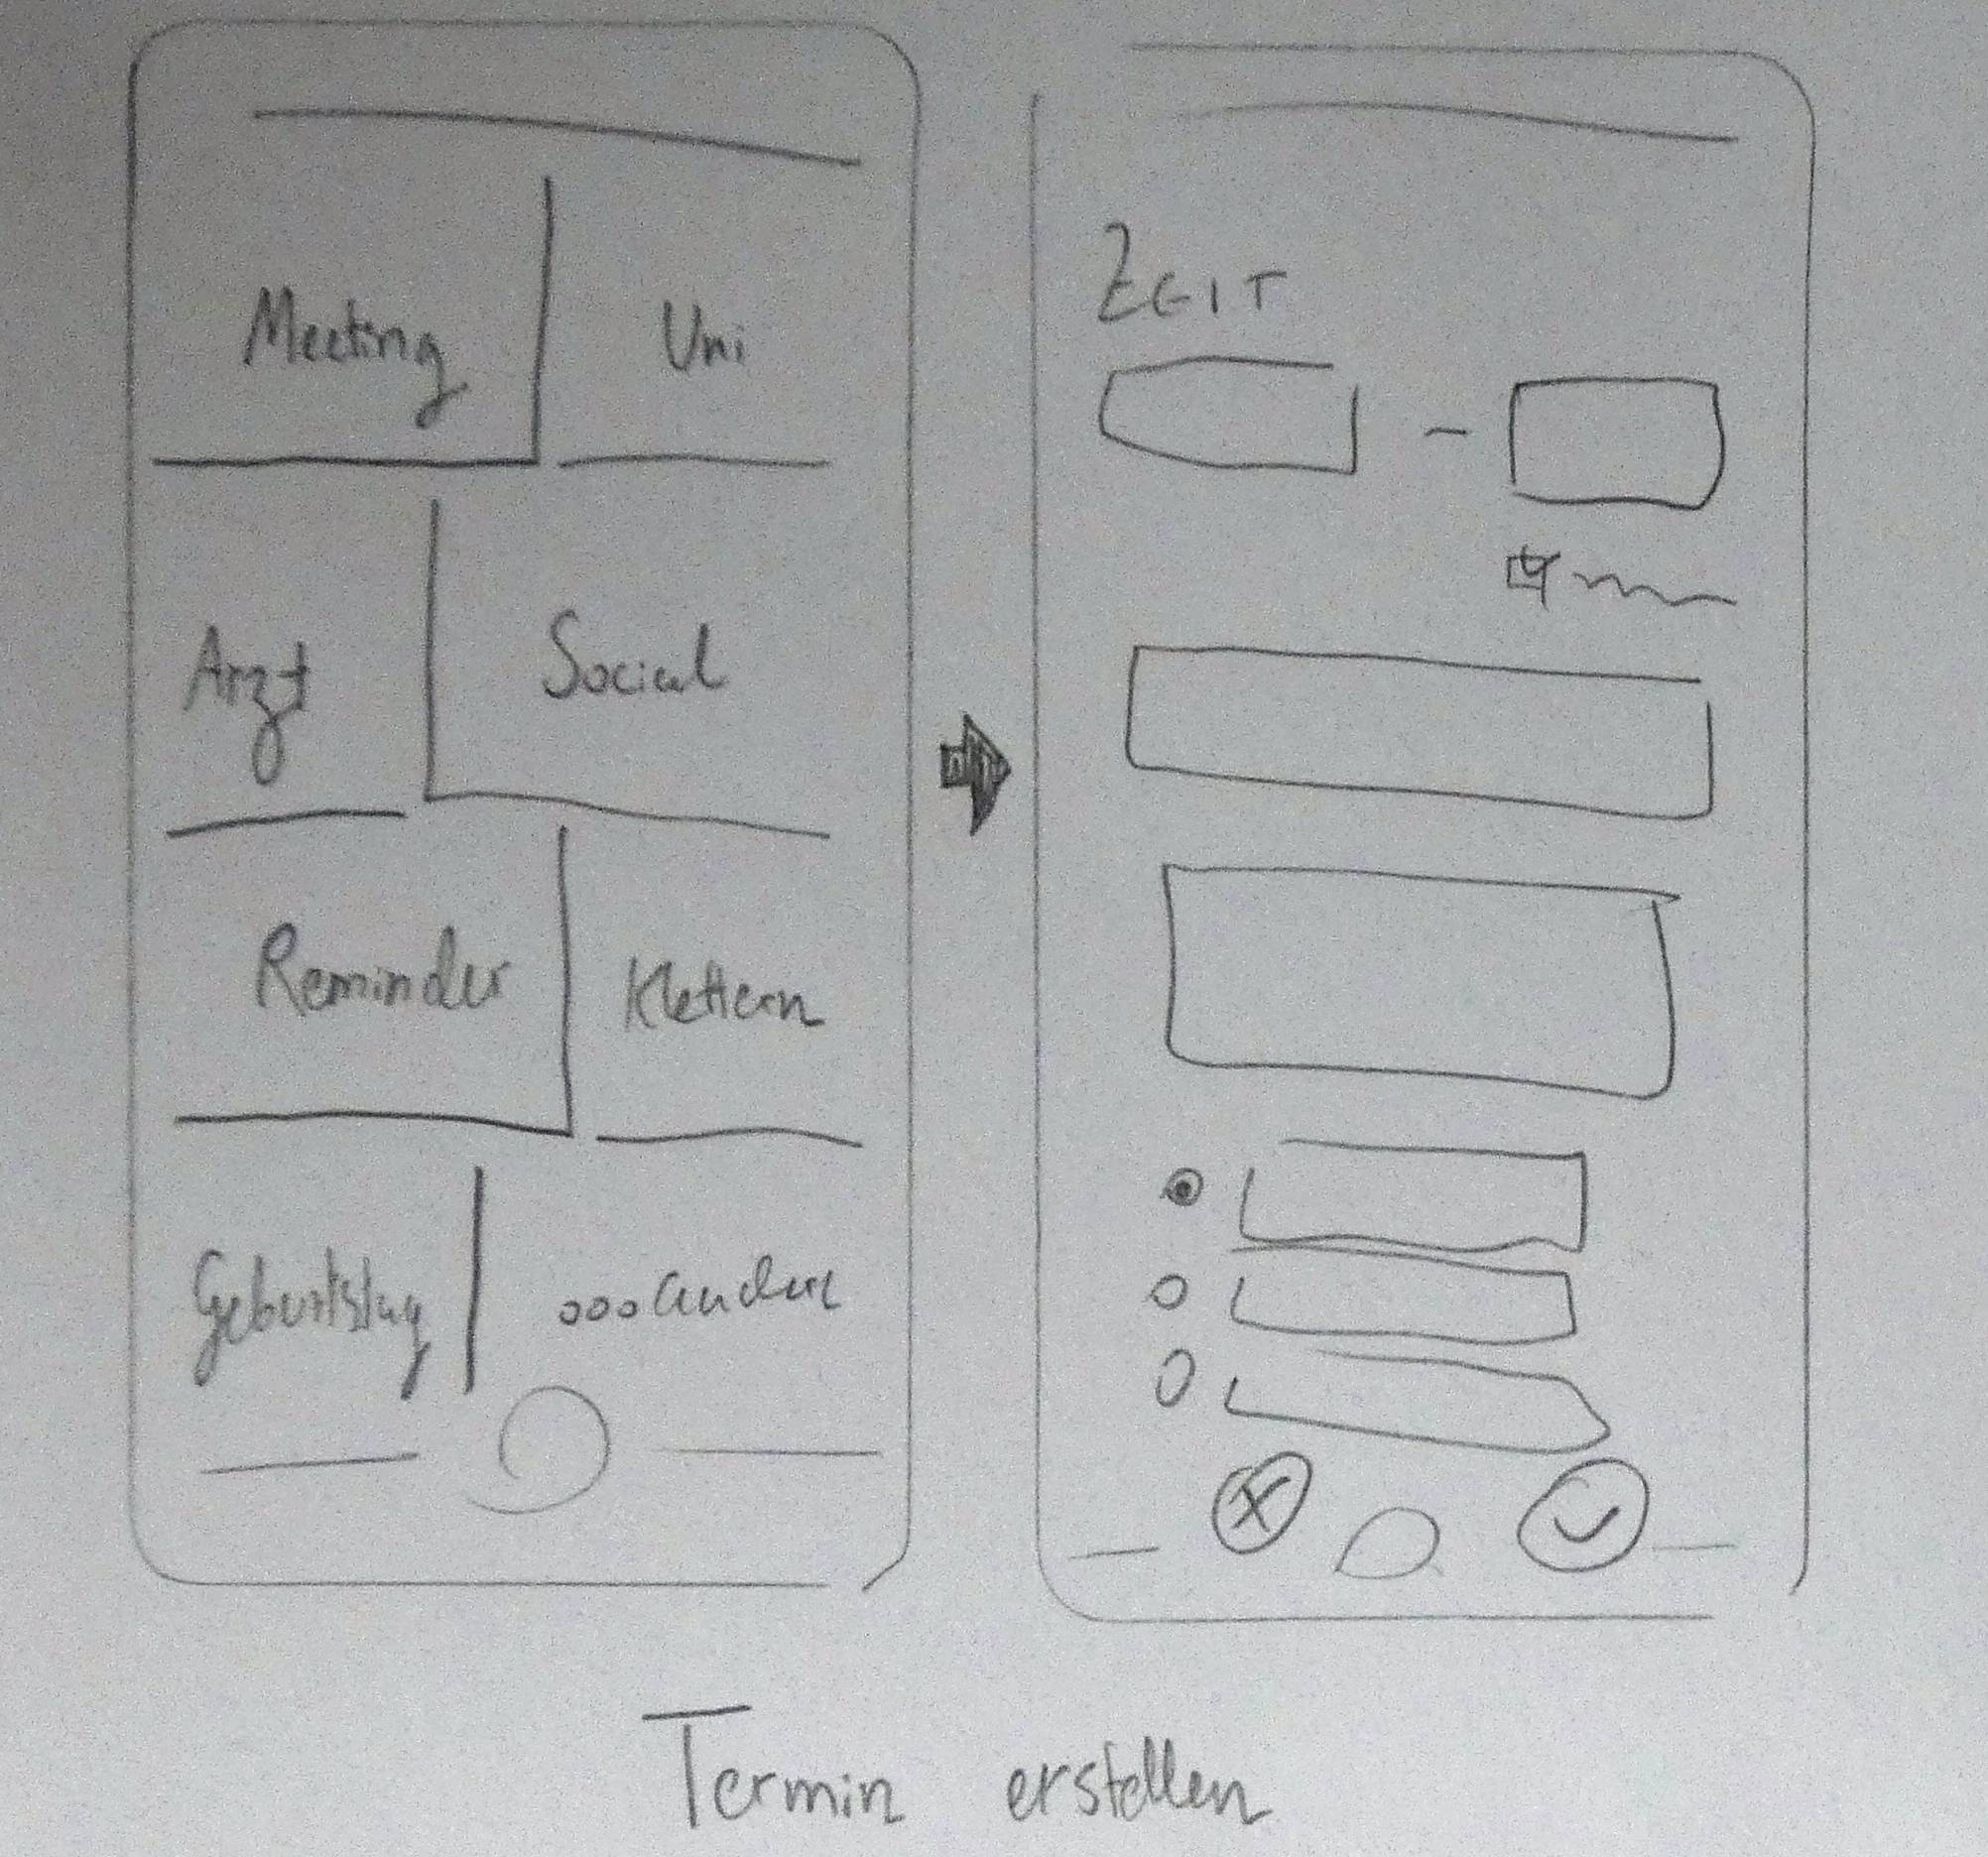 Meeting
Uni
Arzt
Social
Reminder
Klettern
Geburtstag
ooo andere
ZEIT
Termin erstellen